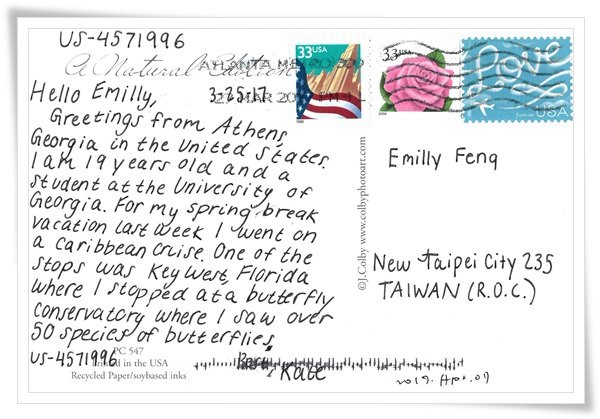 US-4571996
A Natural
ATLANTA METRO 300
27 MAR 20 PM
33USA
33
Love
forever USA
3-25-17
Hello Emilly,
Greetings from Athens,
Georgia in the United States.
I am 19 years old and a
student at the University of
Georgia. For my spring break
vacation last week I went on
a Caribbean Cruise. One of the
stops was Key West, Florida
where I stopped at a butterfly
conservatory where I saw over
50 species of butterflies.
US-4571996
PC 547
Printed in the USA
Recycled Paper/soybased inks
Kate
©J.Colby www.colbyphotoart.com
Emilly Feng
New Taipei City 235
TAIWAN (R.O.C.)